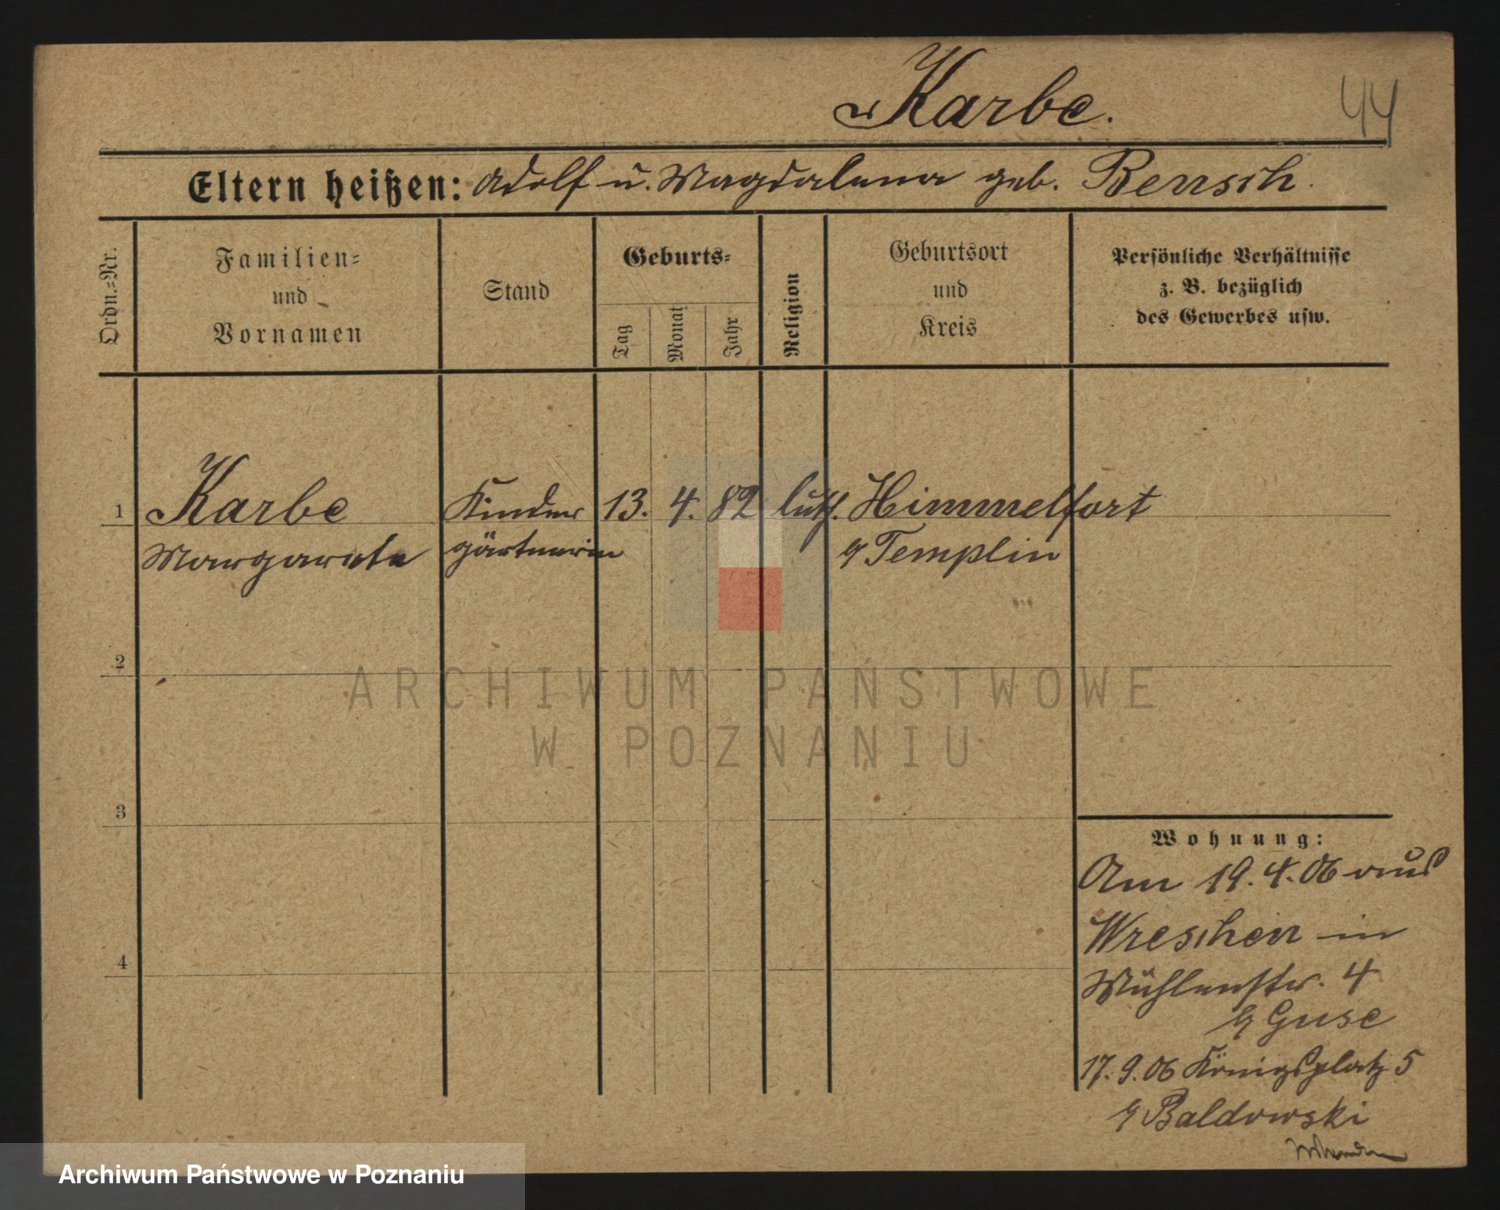 Karbe.
44
Eltern heißen: Adolf u. Magdalena geb. Bensch.
Ordn.=Nr.
Familien=
und
Vornamen
Stand
Geburts=
Tag
Monat
Jahr
Religion
Geburtsort
und
Kreis
Persönliche Verhältnisse
z. B. bezüglich
des Gewerbes usw.
1 Karbe Kinder 13. 4. 82 luth. Himmelfort
Margarete gärtnerin Templin
2
ARCHIWUM PAŃSTWOWE
W POZNANIU
3
Wohnung:
Am 19.4.06 aus
Wreschen in
4
Mühlenstr. 4
Guse
17.9.06 Königsplatz 5
Baldowski
Archiwum Państwowe w Poznaniu